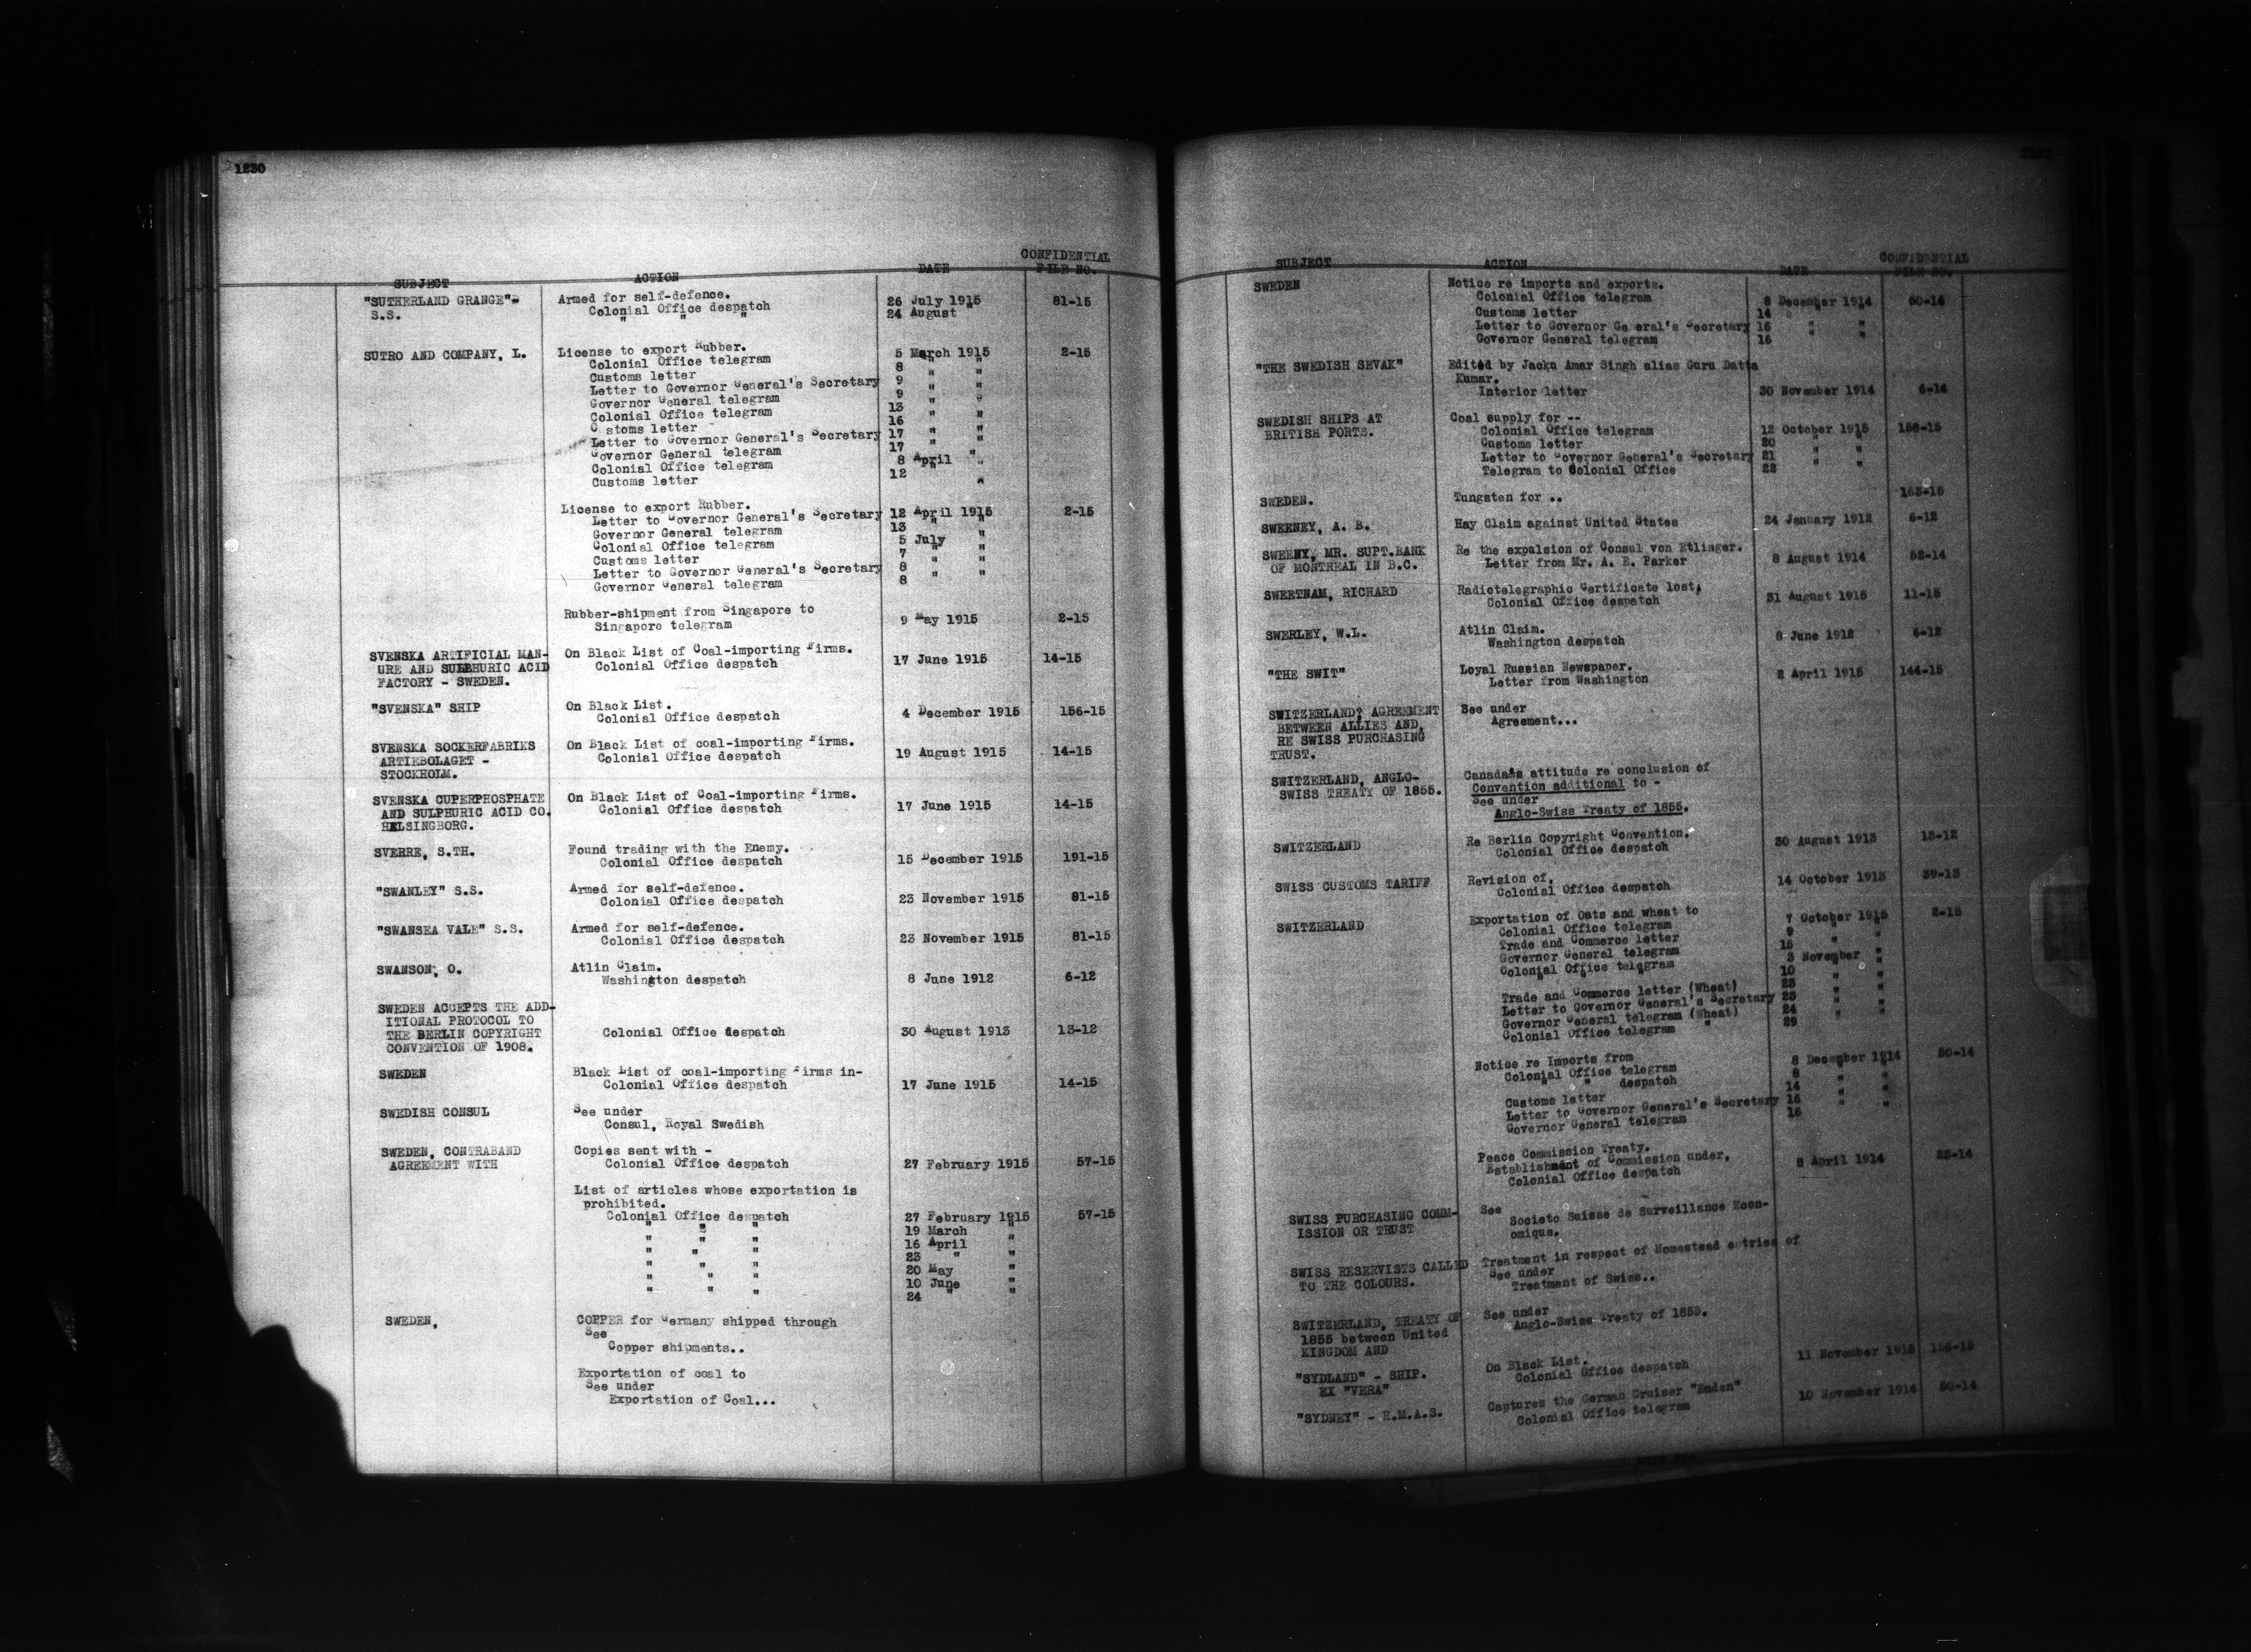 1230
SUBJECT ACTION DATE CONFIDENTIAL FILE NO.
"SUTHERLAND GRANGE"- Armed for self-defence.
S.S. Colonial Office despatch 26 July 1915 81-15
" " " 24 August "
SUTRO AND COMPANY, L. License to export Rubber.
Colonial Office telegram 5 March 1915 2-15
Customs letter 8 " "
Letter to Governor General's Secretary 9 " "
Governor General telegram 9 " "
Colonial Office telegram 13 " "
Customs letter 16 " "
Letter to Governor General's Secretary 17 " "
Governor General telegram 17 " "
Colonial Office telegram 8 April "
Customs letter 12 " "
License to export Rubber.
Letter to Governor General's Secretary 12 April 1915 2-15
Governor General telegram 13 " "
Colonial Office telegram 5 July "
Customs letter 7 " "
Letter to Governor General's Secretary 8 " "
Governor General telegram 8 " "
Rubber-shipment from Singapore to
Singapore telegram 9 May 1915 2-15
SVENSKA ARTIFICIAL MAN- On Black List of Coal-importing Firms.
URE AND SULPHURIC ACID Colonial Office despatch 17 June 1915 14-15
FACTORY - SWEDEN.
"SVENSKA" SHIP On Black List.
Colonial Office despatch 4 December 1915 156-15
SVENSKA SOCKERFABRIKS On Black List of coal-importing Firms.
ARTIEBOLAGET - Colonial Office despatch 19 August 1915 14-15
STOCKHOLM.
SVENSKA CUPERPHOSPHATE On Black List of Coal-importing Firms.
AND SULPHURIC ACID CO. Colonial Office despatch 17 June 1915 14-15
HELSINGBORG.
SVERRE, S.TH. Found trading with the Enemy.
Colonial Office despatch 15 December 1915 191-15
"SWANLEY" S.S. Armed for self-defence.
Colonial Office despatch 23 November 1915 81-15
"SWANSEA VALE" S.S. Armed for self-defence.
Colonial Office despatch 23 November 1915 81-15
SWANSON, O. Atlin Claim.
Washington despatch 8 June 1912 6-12
SWEDEN ACCEPTS THE ADD-
ITIONAL PROTOCOL TO
THE BERLIN COPYRIGHT Colonial Office despatch 30 August 1913 13-12
CONVENTION OF 1908.
SWEDEN Black List of coal-importing Firms in-
Colonial Office despatch 17 June 1915 14-15
SWEDISH CONSUL See under
Consul, Royal Swedish
SWEDEN, CONTRABAND Copies sent with -
AGREEMENT WITH Colonial Office despatch 27 February 1915 57-15
List of articles whose exportation is
prohibited.
Colonial Office despatch 27 February 1915 57-15
" " " 19 March "
" " " 16 April "
" " " 23 " "
" " " 20 May "
" " " 10 June "
" " " 24 " "
SWEDEN, COPPER for Germany shipped through
See
Copper shipments..
Exportation of coal to
See under
Exportation of Coal...
SUBJECT ACTION DATE CONFIDENTIAL FILE NO.
SWEDEN Notice re imports and exports.
Colonial Office telegram 8 December 1914 50-14
Customs letter 14 " "
Letter to Governor General's Secretary 16 " "
Governor General telegram 16 " "
"THE SWEDISH SEVAK" Edited by Jacku Amar Singh alias Guru Datta
Kumar.
Interior letter 30 November 1914 6-14
SWEDISH SHIPS AT Coal supply for --
BRITISH PORTS. Colonial Office telegram 12 October 1915 158-15
Customs letter 20 " "
Letter to Governor General's Secretary 21 " "
Telegram to Colonial Office 22 " "
SWEDEN. Tungsten for .. 163-15
SWEENEY, A. B. Hay Claim against United States 24 January 1912 6-12
SWEENY, MR. SUPT.BANK Re the expulsion of Consul von Etlinger.
OF MONTREAL IN B.C. Letter from Mr. A. E. Parker 8 August 1914 52-14
SWEETNAM, RICHARD Radiotelegraphic Certificate lost;
Colonial Office despatch 31 August 1915 11-15
SWERLEY, W.L. Atlin Claim.
Washington despatch 8 June 1912 6-12
"THE SWIT" Loyal Russian Newspaper.
Letter from Washington 2 April 1915 144-15
SWITZERLAND? AGREEMENT See under
BETWEEN ALLIES AND, Agreement...
RE SWISS PURCHASING
TRUST.
SWITZERLAND, ANGLO- Canada's attitude re conclusion of
SWISS TREATY OF 1855. Convention additional to -
See under
Anglo-Swiss Treaty of 1855.
SWITZERLAND Re Berlin Copyright Convention.
Colonial Office despatch 30 August 1913 13-12
SWISS CUSTOMS TARIFF Revision of,
Colonial Office despatch 14 October 1913 39-13
SWITZERLAND Exportation of Oats and wheat to
Colonial Office telegram 7 October 1915 2-15
Trade and Commerce letter 9 " "
Governor General telegram 15 " "
Colonial Office telegram 3 November "
" " " 10 " "
Trade and Commerce letter (Wheat) 23 " "
Letter to Governor General's Secretary 23 " "
Governor General telegram (Wheat) 24 " "
Colonial Office telegram " 29
Notice re Imports from
Colonial Office telegram 8 December 1914 50-14
" " despatch 8 " "
Customs letter 14 " "
Letter to Governor General's Secretary 16 " "
Governor General telegram 16 " "
Peace Commission Treaty.
Establishment of Commission under,
Colonial Office despatch 8 April 1914 23-14
SWISS PURCHASING COMM- See
ISSION OR TRUST Societe Suisse de Surveillance Econ-
omique.
SWISS RESERVISTS CALLED Treatment in respect of Homestead entries of
TO THE COLOURS. See under
Treatment of Swiss..
SWITZERLAND, TREATY OF See under
1855 between United Anglo-Swiss Treaty of 1855.
KINGDOM AND
"SYDLAND" - SHIP. On Black List.
EX "VERA" Colonial Office despatch 11 November 1915 156-15
"SYDNEY" - H.M.A.S. Captures the German Cruiser "Emden"
Colonial Office telegram 10 November 1914 50-14